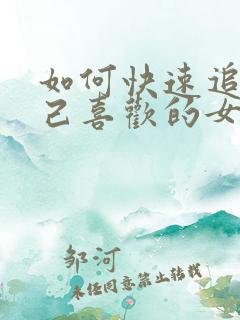 如何快速追
己喜歡的女
邹河
未经同意禁止转载